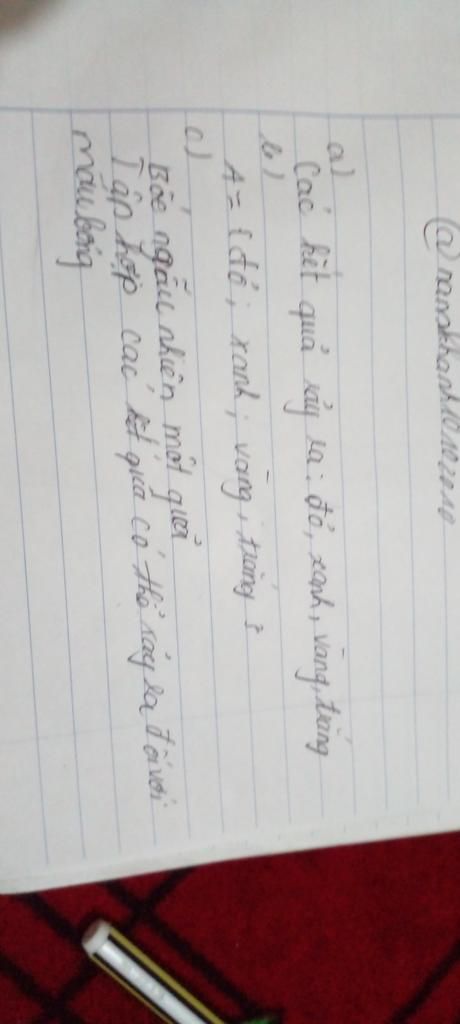 a)
Các kết quả xảy ra: đỏ, xanh, vàng, trắng
b)
A = {đỏ; xanh; vàng; trắng}
c)
Bốc ngẫu nhiên một quả
Tập hợp các kết quả có thể xảy ra đối với
màu bóng